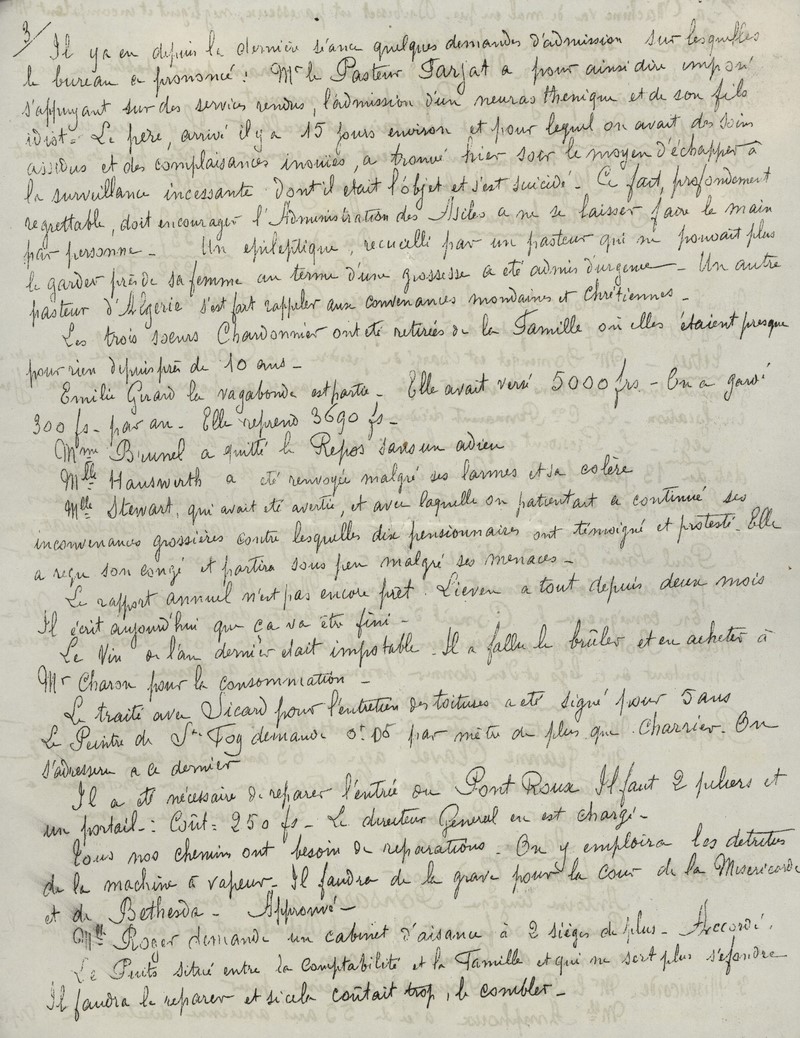 3/
Il y a eu depuis la dernière séance quelques demandes d'admission sur lesquelles
le bureau a prononcé: Mr le Pasteur Farjat a pour ainsi dire imposé
s'appuyant sur des services rendus, l'admission d'un neurasthenique et de son fils
idiot = Le père, arrivé il y a 15 jours environ et pour lequel on avait des soins
assidus et des complaisances inouïes, a trouvé hier soir le moyen d'échapper à
la surveillance incessante dont il était l'objet et s'est suicidé - Ce fait, profondement
regrettable, doit encourager l'Administration des Asiles a ne se laisser faire la main
par personne - Un epileptique, recueilli par un pasteur qui ne pouvait plus
le garder près de sa femme au terme d'une grossesse a eté admis d'urgence - Un autre
pasteur d'Algerie s'est fait rappeler aux convenances mondaines et Chrétiennes -
Les trois soeurs Chardonnier ont eté retirées de la Famille où elles étaient presque
pour rien depuis près de 10 ans -
Emilie Girard la vagabonde est partie - Elle avait versé 5000 frs - On a gardé
300 fs - par an - Elle reprend 3690 fs -
Mme Brunel a quitté le Repos sans un adieu
Mlle Hauswirth a eté renvoyée malgré ses larmes et sa colère
Mlle Stewart, qui avait eté avertie, et avec laquelle on patientait a continué ses
inconvenances grossières contre lesquelles dix pensionnaires ont témoigné et protesté. Elle
a reçu son congé et partira sous peu malgré ses menaces -
Le rapport annuel n'est pas encore prêt. Lieven a tout depuis deux mois
Il écrit aujourd'hui que ça va être fini -
Le Vin de l'an dernier était impotable - Il a fallu le brûler et en acheter à
Mr Charon pour la consommation -
Le traité avec Sicard pour l'entretien des toitures a eté signé pour 5 ans
Le Peintre de Ste Foy demande 0f.05 par mètre de plus que Charrier. On
s'adressera a ce dernier
Il a eté nécessaire de reparer l'entrée du Pont Roux Il faut 2 piliers et
un portail -: Coût = 250 fs - Le directeur Général en est chargé -
Tous nos chemins ont besoin de reparations - On y emploira les detritus
de la machine à vapeur - Il faudra de la grave pour la cour de la Misericorde
et de Bethesda - Approuvé -
Mlle Roger demande un cabinet d'aisance à 2 sièges de plus - Accordé.
Le Puits situé entre la Comptabilité et la Famille et qui ne sert plus s'efondre
Il faudra le reparer et si cela coûtait trop, le combler -